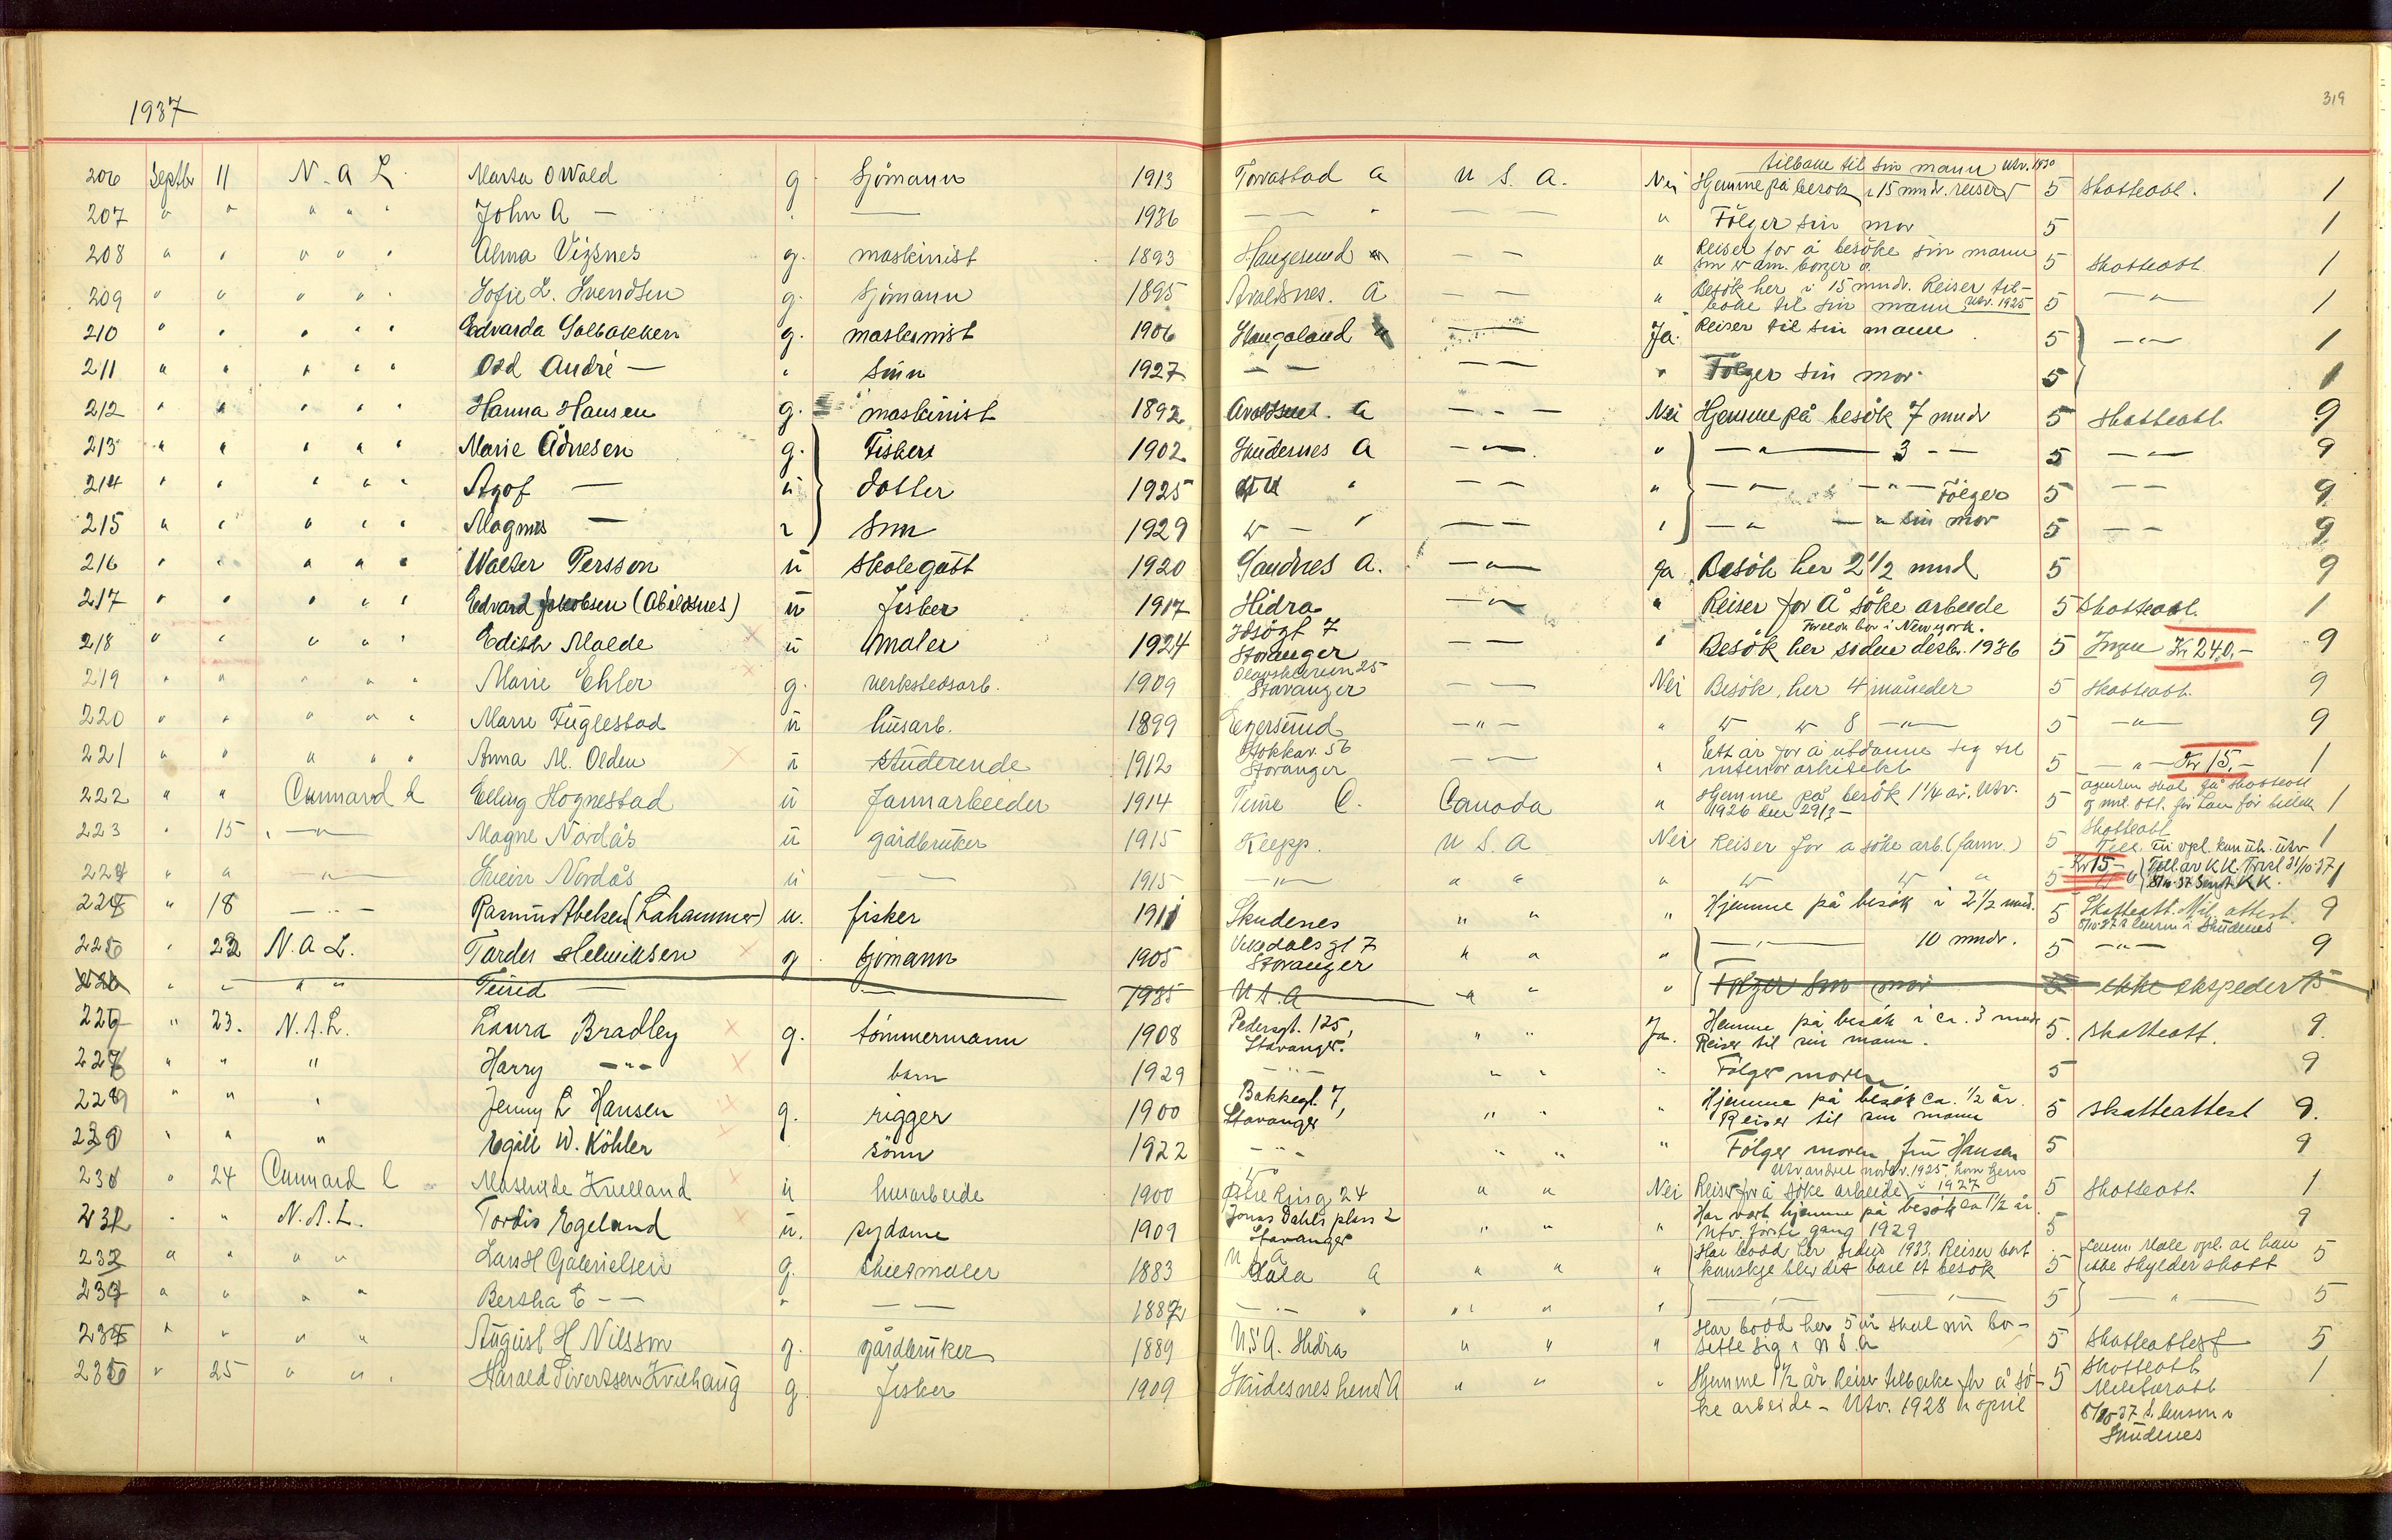 1937
319
206 Septbr 11 N. A. L. Marta O Wold g. Sjömann 1913 Torvastad A U. S. A. Nei Hjemme på besök i 15 mndr. reiser tilbake til sin mann utv. 1930 5 Skatteatt. 1
207 " " " " " John A — " — 1936 — — " — — " Fölger sin mor 5 1
208 " " " " " Alma Visnes g. maskinist 1893 Haugesund — — " Reiser for å besöke sin mann som er am. borger 5 Skatteatt. 1
209 " " " " " Sofie L. Svendsen g. Sjömann 1895 Avaldsnes. A — — " Besök her i 15 mndr. Reiser tilbake til sin mann utv. 1925 5 — " — 1
210 " " " " " Edvarda Solbakken g. maskinist 1906 Skaugaland — — Ja. Reiser til sin mann 5 — " — 1
211 " " " " " Odd André — " Sönn 1927 — — — — " Fölger sin mor 5 1
212 " " " " " Hanna Hansen g. maskinist 1892 Avaldsnes. A — - — Nei Hjemme på besök 7 mndr 5 Skatteatt. 9
213 " " " " " Marie Ådnesen g. Fisker 1902 Skudesnes A — " — " — " — 3 - — 5 — " — 9
214 " " " " " Agof — ü datter 1925 " — — " — " — — " — Fölger 5 — — 9
215 " " " " " Magnus — " Sönn 1929 " — " — — " — " — " sin mor 5 — — 9
216 " " " " " Walter Persson ü skolegutt 1920 Sandnes A. — " — Ja Besök her 2 1/2 mnd 5 9
217 " " " " " Edvard Jakobsen (Abildsnes) ü fisker 1917 Hidra — " — " Reiser for å söke arbeide 5 Skatteatt. 1
218 " " " " " Edith Malde ü maler 1924 Idsögt 7 Stavanger — — " Foreldr. bor i New York. Besök her siden desbr. 1936 5 Ingen Kr 240,- 9
219 " " " " " Marie Ehler g. verkstedsarb. 1909 Olavskleiven 25 Stavanger — — Nei Besök her 4 måneder 5 Skatteatt. 9
220 " " " " " Marie Fuglestad ü husarb. 1899 Egersund — " — " " " 8 — " — 5 — " — 9
221 " " " " " Anna M. Olden ü studerende 1912 Stokkav. 56 Stavanger — — " Ett år for å utdanne sig til interiörarkitekt 5 — " — Kr 15,- 1
222 " " Cunnard L Elling Hognestad ü farmarbeider 1914 Time C. Canada " Hjemme på besök 1 1/4 år. Utv. 1926 den 29/3 — 5 agenten skal få skatteatt og mil. att. for han för billett 1
223 " 15 " — " — Magne Nordås ü gårdbruker 1915 Klepp. U S. A Nei Reiser for å söke arb. (farm.) 5 Skatteatt. 1
224 " " — " — Svein Nordås ü — — 1915 — " — " " " " " " 5 Kr 15- 1
225 " 18 — " — Rasmus Abeken (Lahammer) u. fisker 1911 Skudenes " " " Hjemme på besök i 2 1/2 mnd. 5 Skatteatt. Mil. attest. 9
226 " 22 N. A L. Tordis Helmiksen g. sjömann 1905 Verksdalsgt 7 Stavanger " " " — " — 10 mndr. 5 — " — 9
" " " " Turid — — 1935 U.S.A " " " Fölger sin mor ikke ekspedert 5
227 " 23. N.A.L. Laura Bradley g. tömmermann 1908 Pedersgt. 125, Stavanger. " " Ja. Hemme på besök i ca. 3 mndr Reiser til sin mann. 5. Skatteatt. 9.
228 " " " Harry — " — barn 1929 — " — " " " Fölger moren 5 9
229 " " " Jenny L Hansen g. rigger 1900 Bakkegt. 7, Stavanger " " " Hjemme på besök ca. 1/2 år. Reiser til sin mann 5 skatteattest 9.
230 " " " Egill W. Köhler sönn 1922 — " — " " " Fölger moren, fru Hansen 5 9
231 " 24 Cunnard L Mathilde Kielland ü husarbeide 1900 Östre Ring 24 " " Nei Utvandret novbr. 1925, kom hjem i 1927 Reiser for å söke arbeide 5 Skatteatt. 1
232 " " N.A.L. Tordis Egeland u. sydame 1909 Jonas Dahls plass 2 Stavanger " " " Har vært hjemme på besök ca 1 1/2 år. Utv. förste gang 1929 5 9
233 " " " " Lars H Gabrielsen g. skibsmaler 1883 U S A " " " Har bodd her siden 1933. Reiser bort kanskje blir det bare et besök 5 Lensm. Male opl. at han ikke skylder skatt 5
234 " " " " Bertha E - — " — — 1887 — " — " " " " — " — 5 — " — 5
235 " " " " August H Nilsson g. gårdbruker 1889 U.S.A. Hidra " " " Har bodd her 5 år skal nu bosette sig i U S. A 5 Skatteattest 5
236 " 25 " " " Harald Sivertsen Kvilhaug g. fisker 1909 Skudesneshavn A " " " Hjemme 1 1/2 år. Reiser tilbake for å söke arbeide - Utv. 1928 i april 5 Skatteatt. Militæratt. 5/10-37 t. lensm. i Skudenes 1